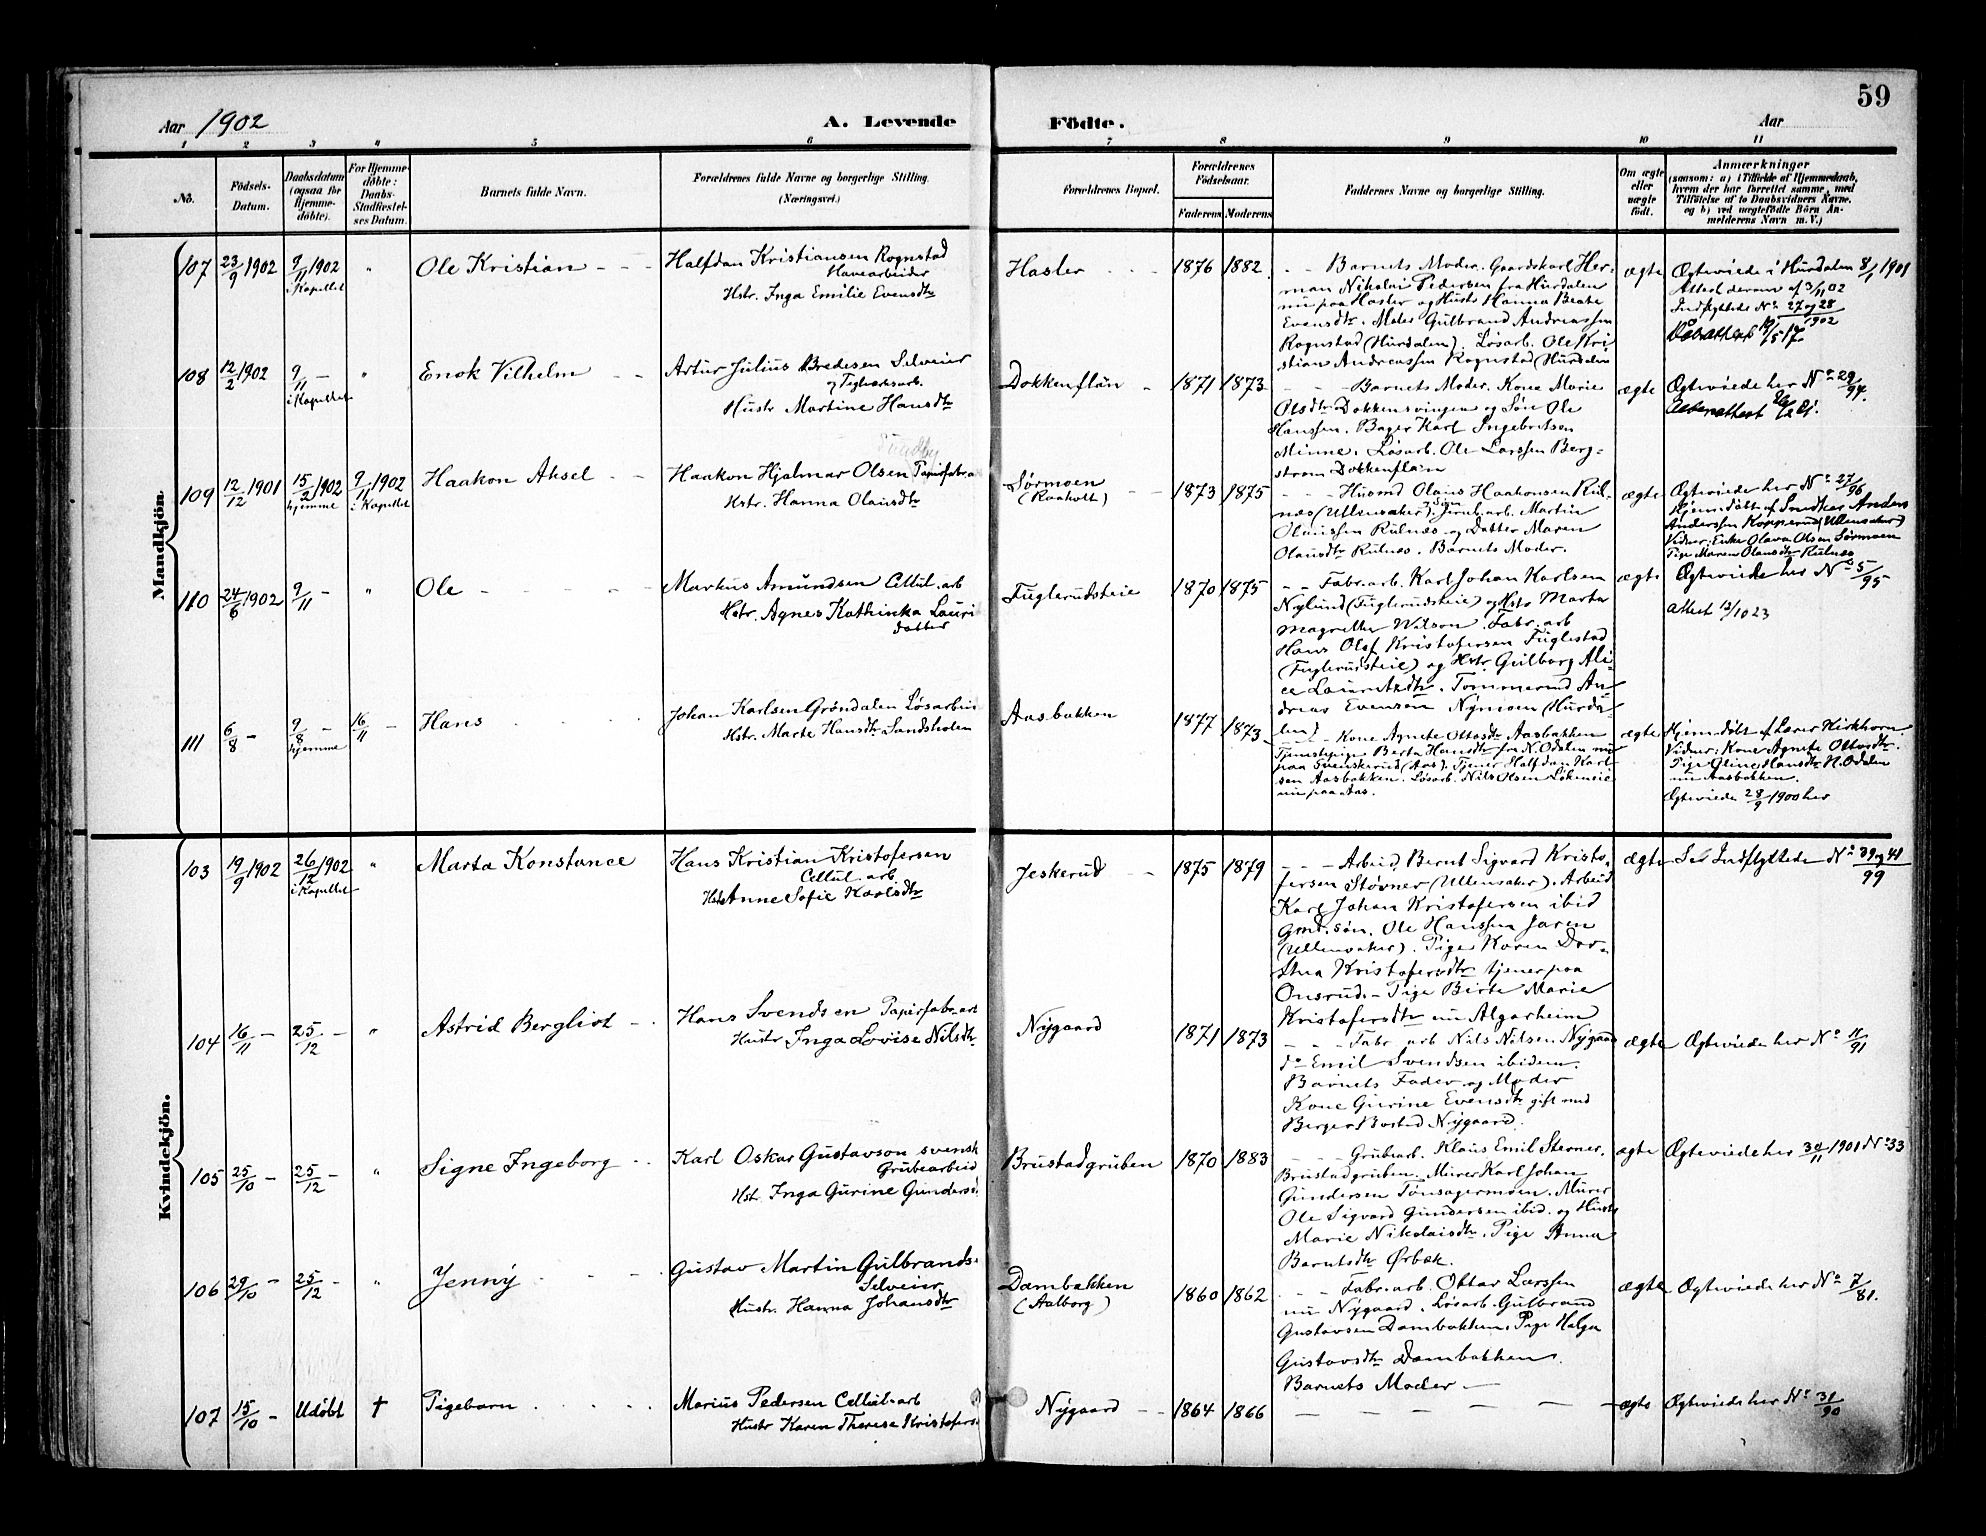 59
Aar 1902
A. Levende
Födte.
Aar
1 2 3 4 5 6 7 8 9 10 11
No.
Födsels-
Datum.
Daabsdatum
(ogsaa for
Hjemme-
döbte).
For Hjemme-
döbte:
Daabs-
Stadfæstel-
ses Datum.
Barnets fulde Navn.
Forældrenes fulde Navne og borgerlige Stilling.
(Næringsvei.)
Forældrenes Bopæl.
Forældrenes
Födselsaar.
Faderens Moderens
Faddernes Navne og borgerlige Stilling.
Om ægte
eller
uægte
födt.
Anmærkninger
(saasom: a) i Tilfælde af Hjemmedaab,
hvem der har forrettet samme, med
Tilföielse af to Daabsvidners Navne,
og b) ved uægtefödte Börn An-
melderens Navn m. V.)
Mandkjön.
107 23/9 1902 9/11 1902 "
i Kapellet
Ole Kristian
Halfdan Kristiansen Rognstad
Havearbeider
Hstr. Inga Emilie Evensdtr
Hasler
1876 1882
Barnets Moder. Gaardskarl Her-
man Nikolai Pedersen fra Hurdalen
nu paa Hasler og Hustr Hanna Beate
Evensdtr. Maler Gulbrand Andreassen
Rognstad (Hurdalen). Løsarb. Ole Kri
stian Andreassen Rognstad (Hurdalen
ægte
Ægteviede i Hurdalen 8/1 1901
Attest derom af 3/11 02
Indflyttede No 27 og 28
1902
108 12/2 1902 9/11 — "
i Kapellet
Enok Vilhelm
Artur Julius Bredesen Selveier
og Teglverksarb.
Hustr Martine Hansdtr
Dokkenflån
1871 1873
Barnets Moder. Kone Marie
Olsdtr Dokkensvingen og Søn Ole
Hanssen. Bager Karl Ingebretsen
Minne. Løsarb. Ole Larssen Berg-
strøm Dokkenflån
ægte
Ægteviede her No 29/94.
109 12/12 1901 15/2 1902 9/11 1902
hjemme i Kapellet
Haakon Aksel
Haakon Hjalmar Olsen Papirfabr.a
Hstr. Hanna Olausdtr
Sørmoen
(Raaholt)
1873 1875
Husmd Olaus Haakonsen Rul-
næs (Ullensaker). Søn Jernb. arb. Martin
Olaussen Rulnæs og Datter Maren
Olausdtr Rulnæs. Barnets Moder.
ægte
Ægteviede her No 27/96
Hjem. døbt af Snedker Anders
Anderssen Kopperud (Ullensaker)
Vidner: Enke Olava Olsen Sørmoen
Pige Maren Olausdtr Rulnæs
110 24/6 1902 9/11 — "
Ole
Markus Amundsen Cellul. arb
Hstr. Agnes Kathinka Lauri
datter
Fuglerudsteie
1870 1875
Fabr. arb. Karl Johan Karlsen
Nylund (Fuglerudsteie) og Hstr Marta
Magrethe Wilson. Fabr. arb
Hans Olaf Kristofersen Fuglestad
(Fuglerudsteie) og Hstr. Gulborg Ali-
ce Lauritzdtr. Tømmermd An-
dreas Evensen Nymoen (Hurda-
len)
ægte
Ægteviede her No 5/95
attest 13/10 23
111 6/8 — 9/8 — 16/11 —
hjemme
Hans
Johan Karlsen Grøndalen Løsarbeid
Hstr. Marte Hansdtr Sandsholen
Aasbakken
1877 1873
Kone Agnete Ottosdtr Aasbakken
Tjenstepige Berta Hansdtr fra N. Odalen nu
paa Svenskerud (Aas). Tjener Halfdan Karl-
sen Aasbakken. Løsarb. Nils Olsen Løkeneie
nu paa Aas.
ægte
Hjem. døbt af Lærer Kirkhorn
Vidner: Kone Agnete Ottosdtr.
Pige Oline Hansdtr N. Odalen
nu Aasbakken.
Ægteviede 28/9 1900 her
Kvindekjön.
103 19/9 1902 26/12 1902 "
i Kapellet
Marta Konstance
Hans Kristian Kristofersen
Cellul. arb
Hstr Anne Sofie Karlsdtr
Jeskerud
1875 1879
Arbeid. Bernt Sigvard Kristo-
fersen Støvner (Ullensaker). Arbeid
Karl Johan Kristofersen ibid
Gmd. søn. Ole Hanssen Jaren
(Ullensaker). Pige Karen Dor-
thea Kristofersdtr tjener paa
Onsrud. – Pige Birte Marie
Kristofersdtr nu Algarheim
ægte
Se Indflyttede No 39 og 41
99
104 16/11 — 25/12 — "
Astrid Bergliot
Hans Svendsen Papirfabr. arb
Hustr Inga Lovise Nilsdtr
Nygaard
1871 1873
Fabr. arb Nils Nilsen Nygaard
do Emil Svendsen ibidem.
Barnets Fader og Moder
Kone Gurine Evensdtr gift med
Berger Bostad Nygaard.
ægte
Ægteviede her No 11/91
105 25/10 — 25/12 — "
Signe Ingeborg
Karl Oskar Gustavson svensk
Grubearbeid
Hstr. Inga Gurine Gundersd
Brustadgruben
1870 1883
Grubarb. Klaus Emil Sterner.
Brustadgruben. Murer Karl Johan
Gundersen Tønsagermoen. Murer
Ole Sigvard Gundersen ibid. og Hustr
Marie Nikolaisdtr. Pige Anna
Berntsdtr Ørbæk.
ægte
Ægteviede her 30/11 1901 No 33
106 29/10 — 25/12 — "
Jenny
Gustav Martin Gulbrands.
Selveier
Hustr. Hanna Johansdtr
Dambakken
(Aalborg)
1860 1862
Fabr. arb. Ottar Larssen
nu Nygaard. Løsarb. Gulbrand
Gustavsen Dambakken. Pige Helga
Gustavsdtr Dambakken.
Barnets Moder —
ægte
Ægteviede her No 7/81.
107 15/10 — Udøbt †
Pigebarn
Marius Pedersen Cellul-arb
Hustr Karen Therese Kristofers
Nygaard
1864 1866
ægte
Ægteviede her No 31/90